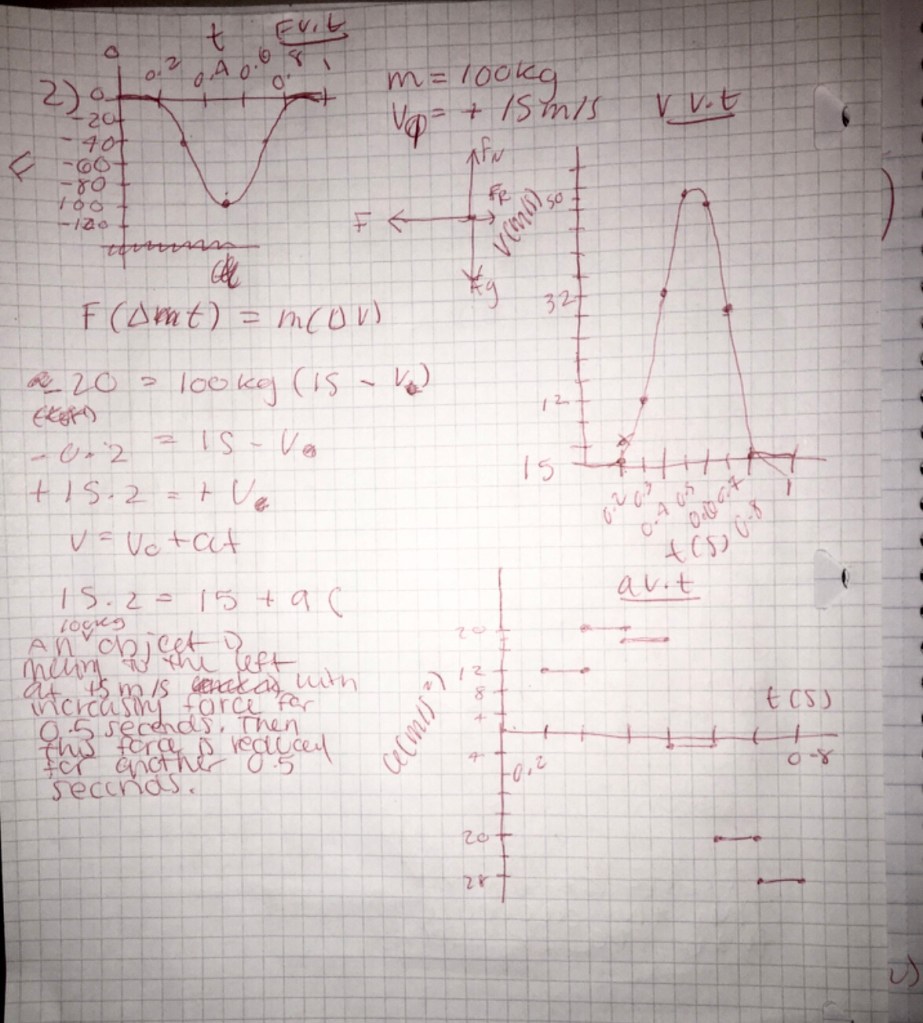 t F v.t
0 0.2 0.4 0.6 0.8 1
2)
0
-20
-40
-60
-80
100
-120
F
m = 100kg
+ 15m/s
V v.t
FN
F
FR
Fg
V(m/s)
50
32
12
15
0.2 0.3 0.4 0.5 0.6 0.7 0.8 1
t(s)
= m(ΔV)
20 = 100kg (15 - V
-0.2 = 15 - V
+15.2 = + V
V = Vo + at
15.2 = 15 + a (
100kg
An object is
to the left
at 15m/s with
increasing force for
0.5 seconds. Then
this force is reduced
for another 0.5
seconds.
a v.t
a(m/s²)
20
12
8
4
4
20
28
t(s)
0.2
0-8